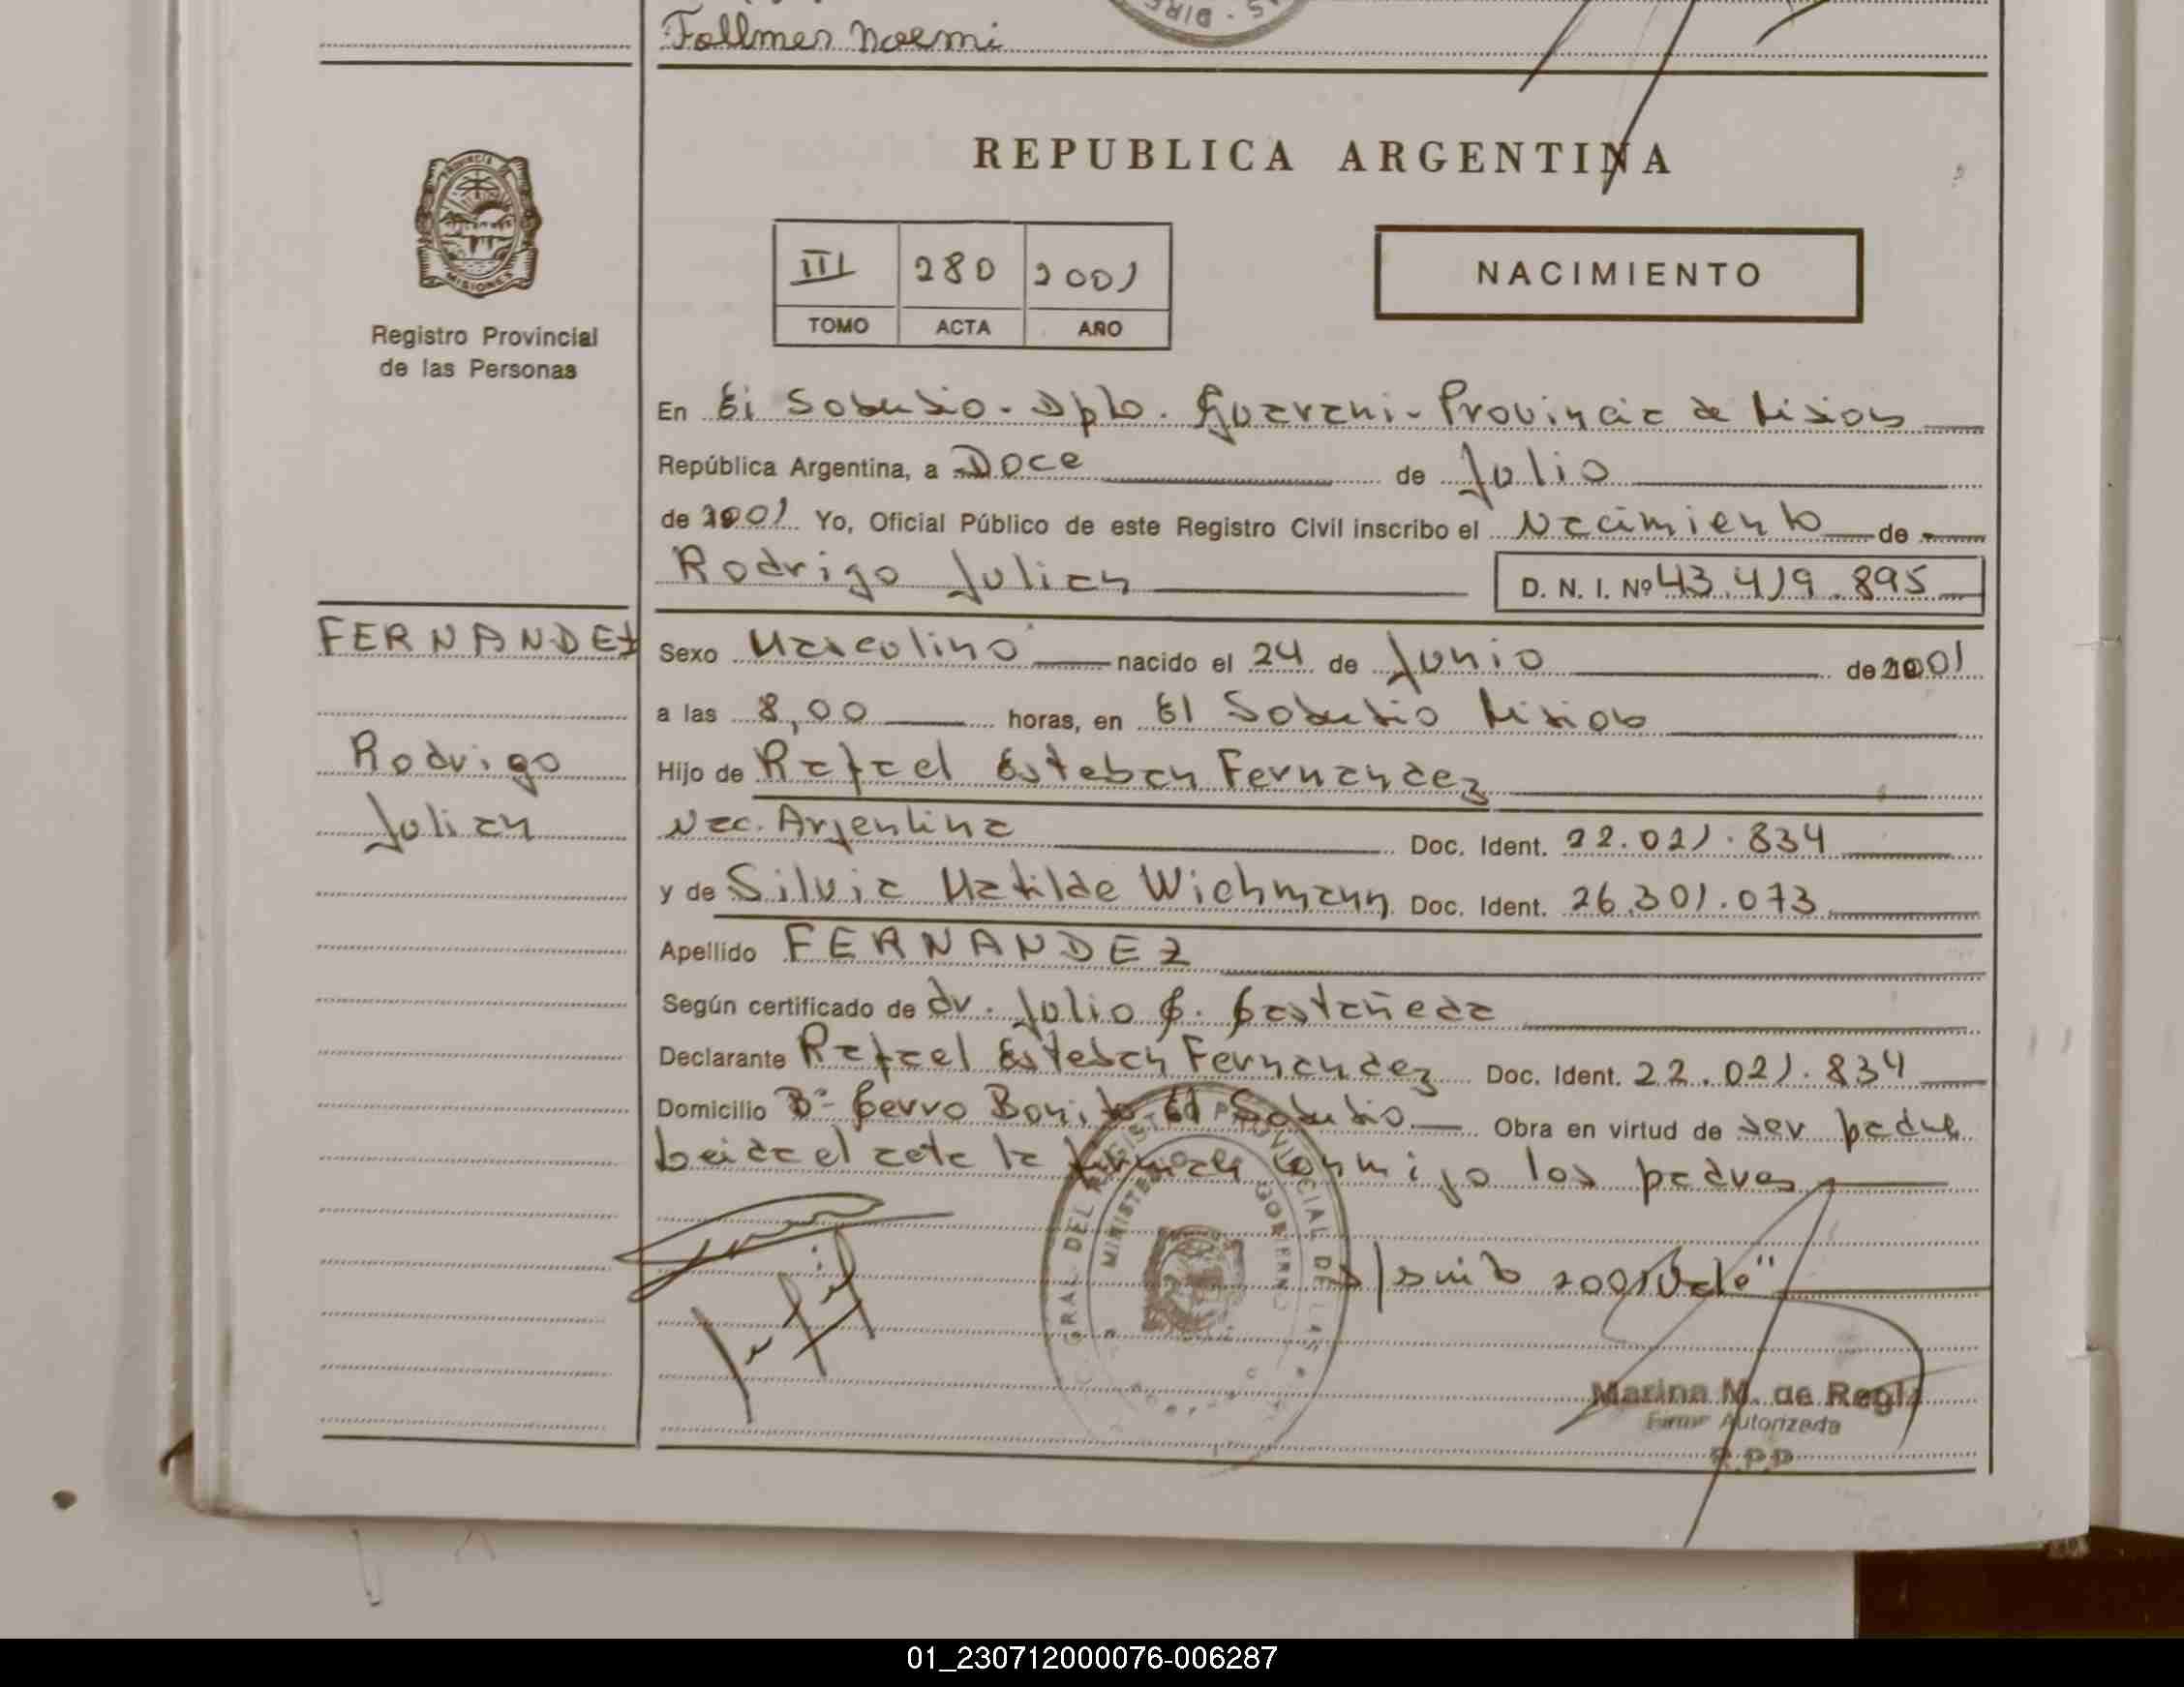 Follmer Noemi
REPUBLICA ARGENTINA
PROVINCIA
MISIONES
Registro Provincial
de las Personas
III 280 2001
TOMO ACTA AÑO
NACIMIENTO
En El Soberbio - Dpto. Guarani - Provincia de Misiones
República Argentina, a Doce de Julio
de 2001 Yo, Oficial Público de este Registro Civil inscribo el Nacimiento de
Rodrigo Julian
D. N. I. Nº 43.419.895
FERNANDEZ
Rodrigo
Julian
Sexo Masculino nacido el 24 de Junio de 2001
a las 8,00 horas, en El Soberbio Misiones
Hijo de Rafael Esteban Fernandez
Nac. Argentina Doc. Ident. 22.021.834
y de Silvia Matilde Wichmann Doc. Ident. 26.301.073
Apellido FERNANDEZ
Según certificado de dr. Julio C. Castañeda
Declarante Rafael Esteban Fernandez Doc. Ident. 22.021.834
Domicilio Bº Cerro Bonito El Soberbio Obra en virtud de ser padre
Leida el acta la firman conmigo los padres
2001 Vale"
Marina M. de Regla
Firma Autorizada
R.P.P
01_230712000076-006287